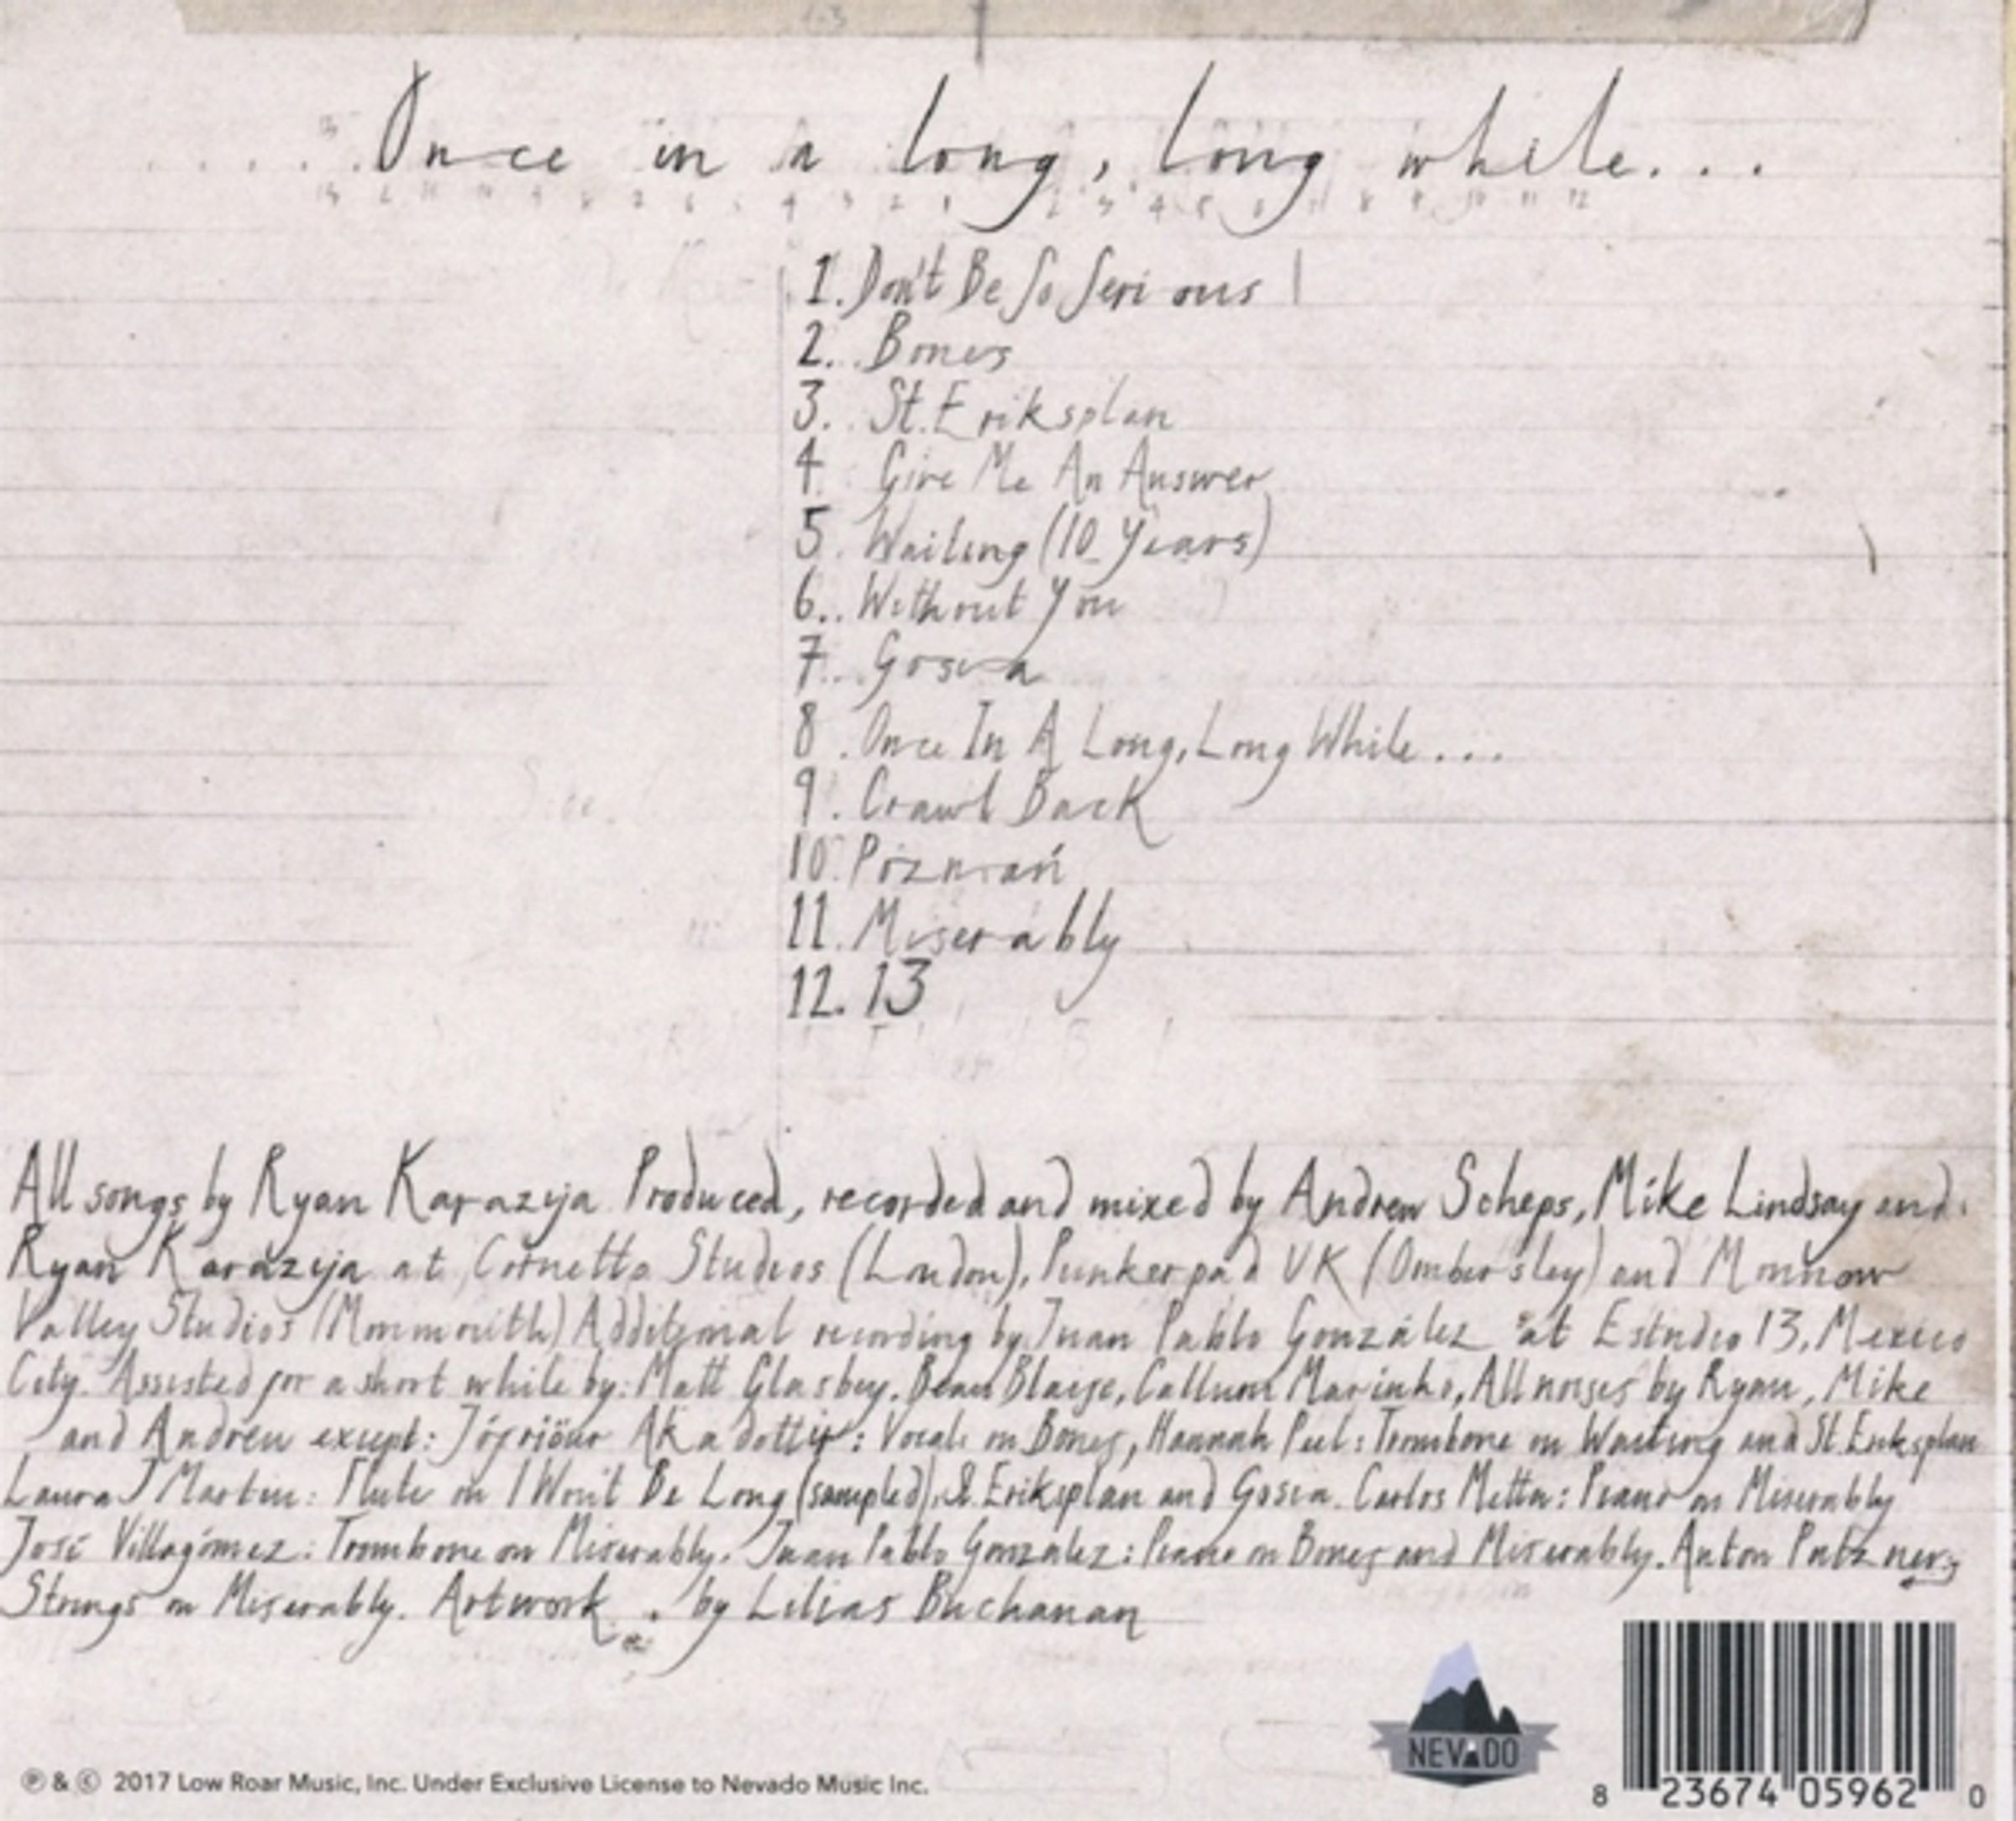 Once in a long, long while...
1. Don't Be So Serious
2. Bones
3. St. Eriksplan
4. Give Me An Answer
5. Waiting (10 Years)
6. Without You
7. Gosia
8. Once In A Long, Long While....
9. Crawl Back
10. Poznań
11. Miserably
12. 13
All songs by Ryan Karazija Produced, recorded and mixed by Andrew Scheps, Mike Lindsay and
Ryan Karazija at Cornetto Studios (London), Punkerpad UK (Ombersley) and Monnow
Valley Studios (Monmouth) Additional recording by Juan Pablo González at Estudio 13, Mexico
City. Assisted for a short while by: Matt Glasbey. Beau Blaise, Callum Marinho, All noises by Ryan, Mike
and Andrew except: AKA dottir: Vocals on Bones, Hannah Peel: Trombone on Waiting and St. Eriksplan
Laura J Martin: Flute on I Won't Be Long (sampled), St. Eriksplan and Gosia. Carlos Metta: Piano on Miserably
José Villagómez: Trombone on Miserably. Juan Pablo Gonzalez: Piano on Bones and Miserably. Anton Patzner:
Strings on Miserably. Artwork by Lilias Buchanan
NEVADO
℗ & © 2017 Low Roar Music, Inc. Under Exclusive License to Nevado Music Inc.
8 23674 05962 0